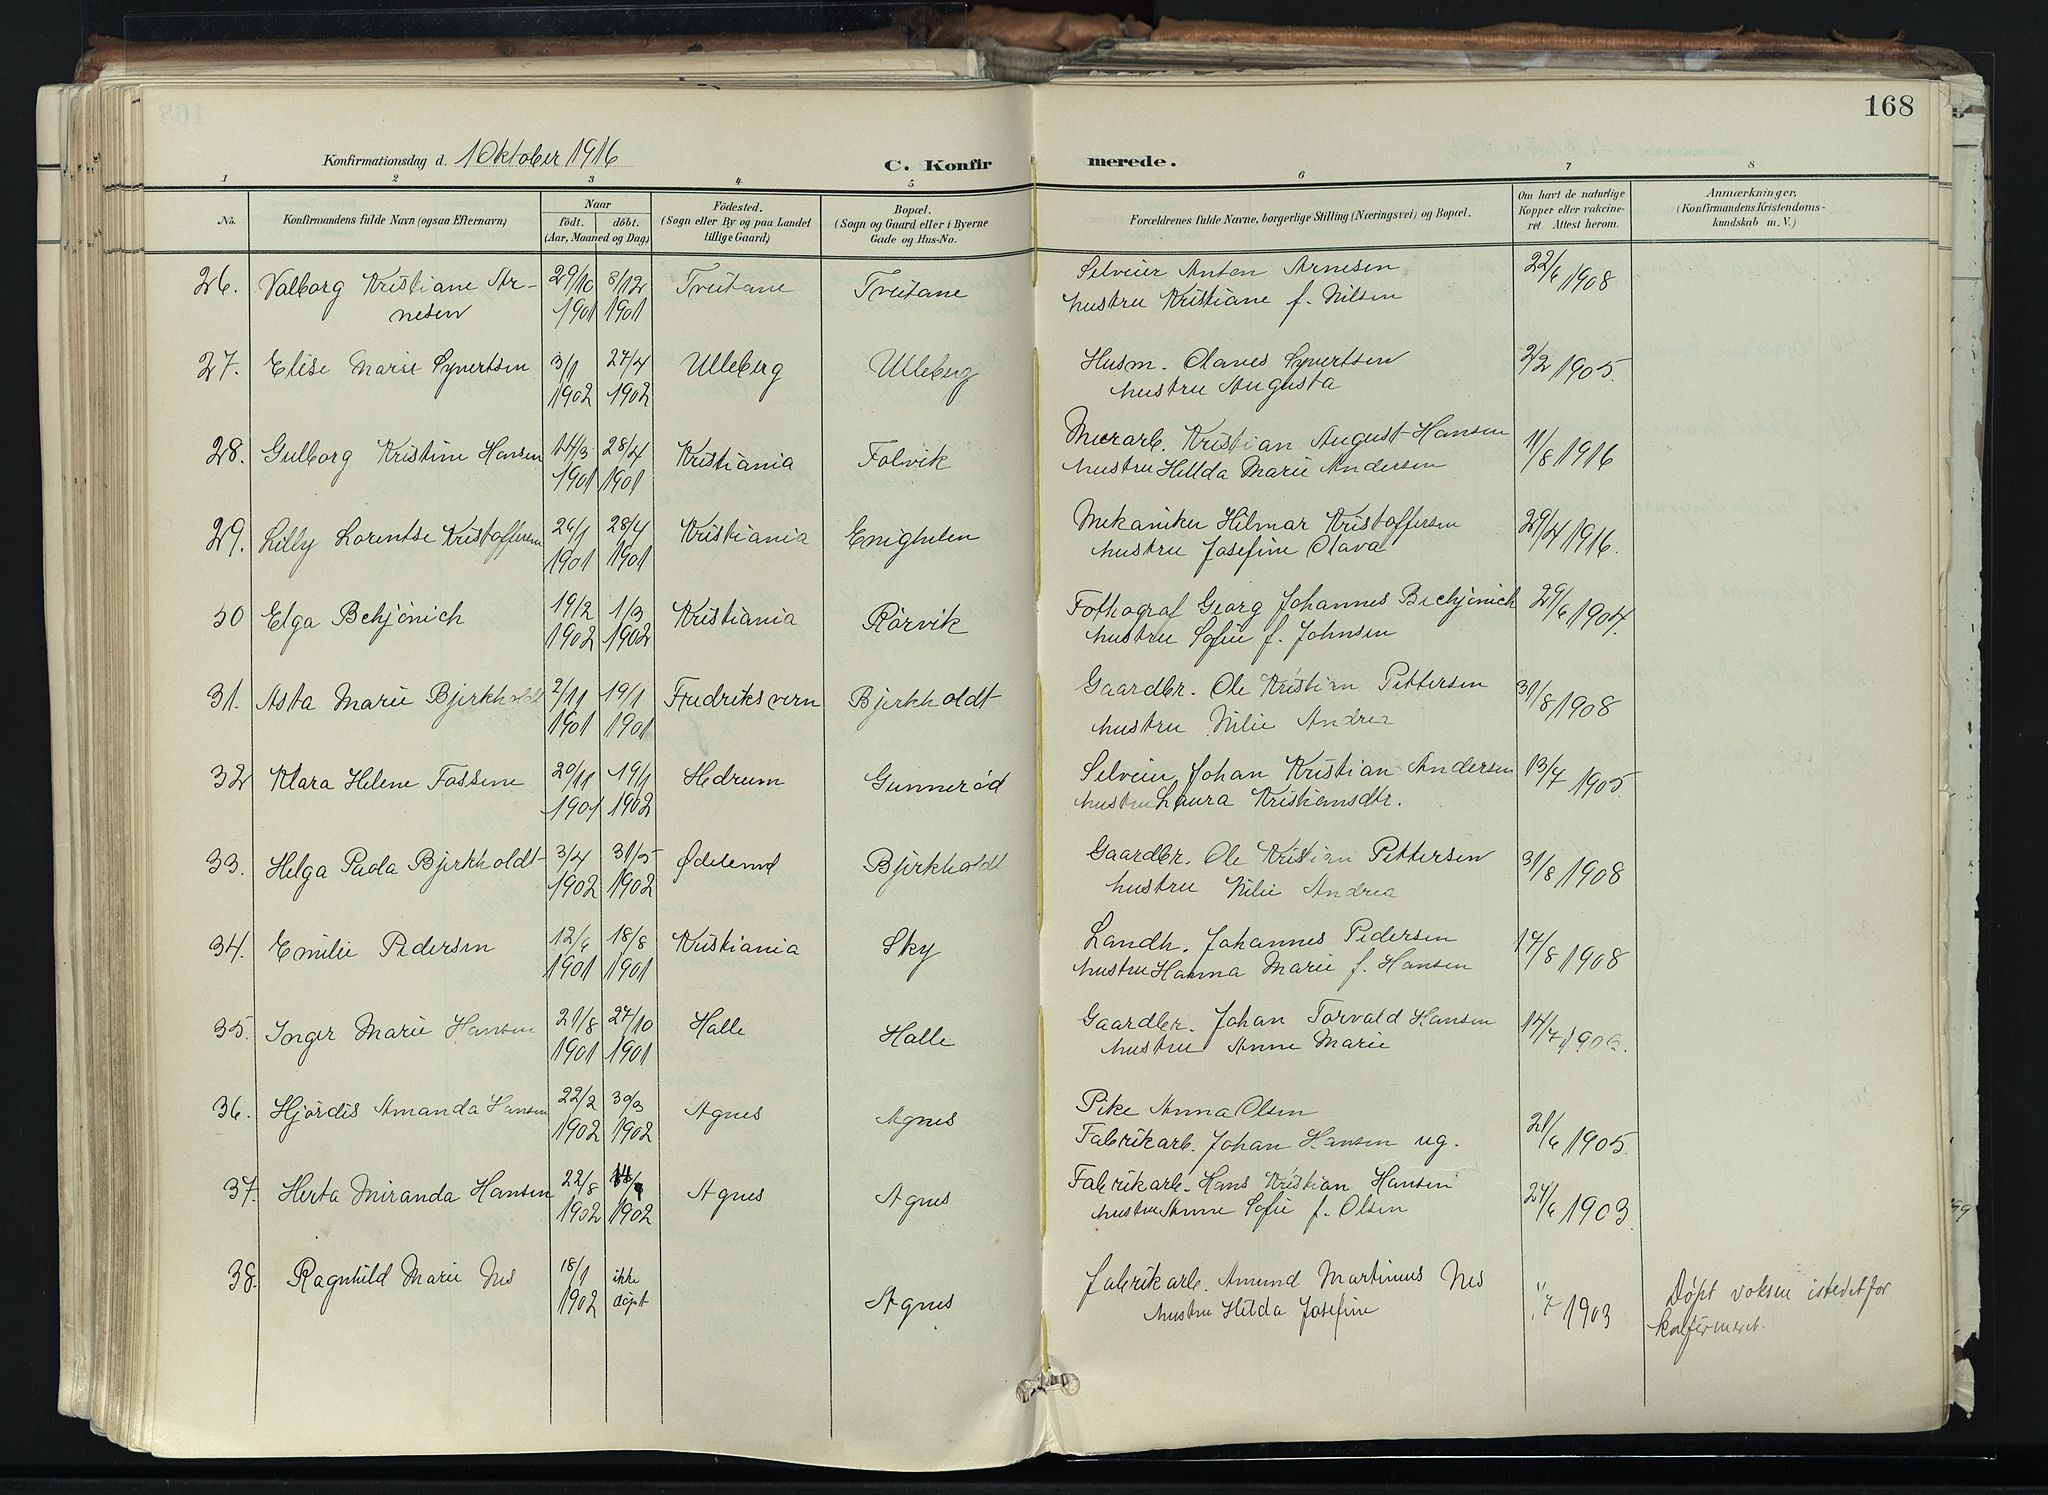 168
Konfirmationsdag d. 1 Oktober 1916
C. Konfirmerede.
1 2 3 4 5 6 7 8
No.
Konfirmandens fulde Navn (ogsaa Efternavn)
Naar
født. døbt.
(Aar, Maaned og Dag)
Fødested.
(Sogn eller By og paa Landet
tillige Gaard)
Bopæl.
(Sogn og Gaard eller i Byerne
Gade og Hus-No.
Forældrenes fulde Navne, borgerlige Stilling (Næringsvei) og Bopæl.
Om havt de naturlige
Kopper eller vakcine-
ret Attest herom.
Anmærkninger.
(Konfirmandens Kristendoms-
kundskab m. V.)
26. Valborg Kristiane Ar- 29/10 8/12 Tveitane Tveitane Selveier Anton Arnesen 22/6 1908
nesen 1901 1901 hustru Kristiane f. Nilsen
27. Elise Marie Syvertsen 3/1 27/4 Ulleberg Ulleberg Husm. Olaves Syvertsen 2/2 1905.
1902 1902 hustru Augusta
28. Gulborg Kristine Hansen 14/3 28/4 Kristiania Folvik Murarb. Kristian August Hansen 11/8 1916
1901 1901 hustru Hilda Marie Andersen
29. Lilly Lorentse Kristoffersen 26/1 28/4 Kristiania Enigheten Mekaniker Hilmar Kristoffersen 29/4 1916.
1901 1901 hustru Josefine Olava
30 Elga Bekjönich 19/2 1/3 Kristiania Rörvik Fothograf Georg Johannes Bekjönich 29/6 1904.
1902 1902 hustru Sofie f. Johnsen
31. Asta Marie Bjerkholdt 2/11 19/1 Fredriksvern Bjerkholdt Gaardbr. Ole Kristian Pettersen 31/8 1908
1901 1901 hustru Nilie Andrea
32 Klara Helene Fossene 20/11 19/1 Hedrum Gunneröd Selveier Johan Kristian Andersen 13/7 1905.
1901 1902 hustru Laura Kristiansdtr.
33. Helga Paola Bjerkholdt 3/4 31/5 Ødelund Bjerkholdt Gaardbr. Ole Kristian Pettersen 31/8 1908
1902 1902 hustru Nilie Andrea
34. Emilie Pedersen 12/6 18/8 Kristiania Sky Landh. Johannes Pedersen 17/8 1908
1901 1901 hustru Hanna Marie f. Hansen
35. Inger Marie Hansen 21/8 27/10 Halle Halle Gaardbr. Johan Torvald Hansen 14/7 1906.
1901 1901 hustru Anne Marie
36. Hjørdis Amanda Hansen 22/2 30/3 Agnes Agnes Pike Anna Olsen 21/6 1905.
1902 1902 Fabrikarb. Johan Hansen ug.
37. Herta Miranda Hansen 22/8 Agnes Agnes Fabrikarb. Hans Kristian Hansen 24/6 1903.
1902 1902 hustru Anne Sofie f. Olsen
38. Ragnhild Marie Nes 18/1 ikke Agnes Fabrikarb. Amund Martinius Nes 1903 Døpt voksen istedetfor
1902 døpt hustru Hilda Josefine konfirmeret.